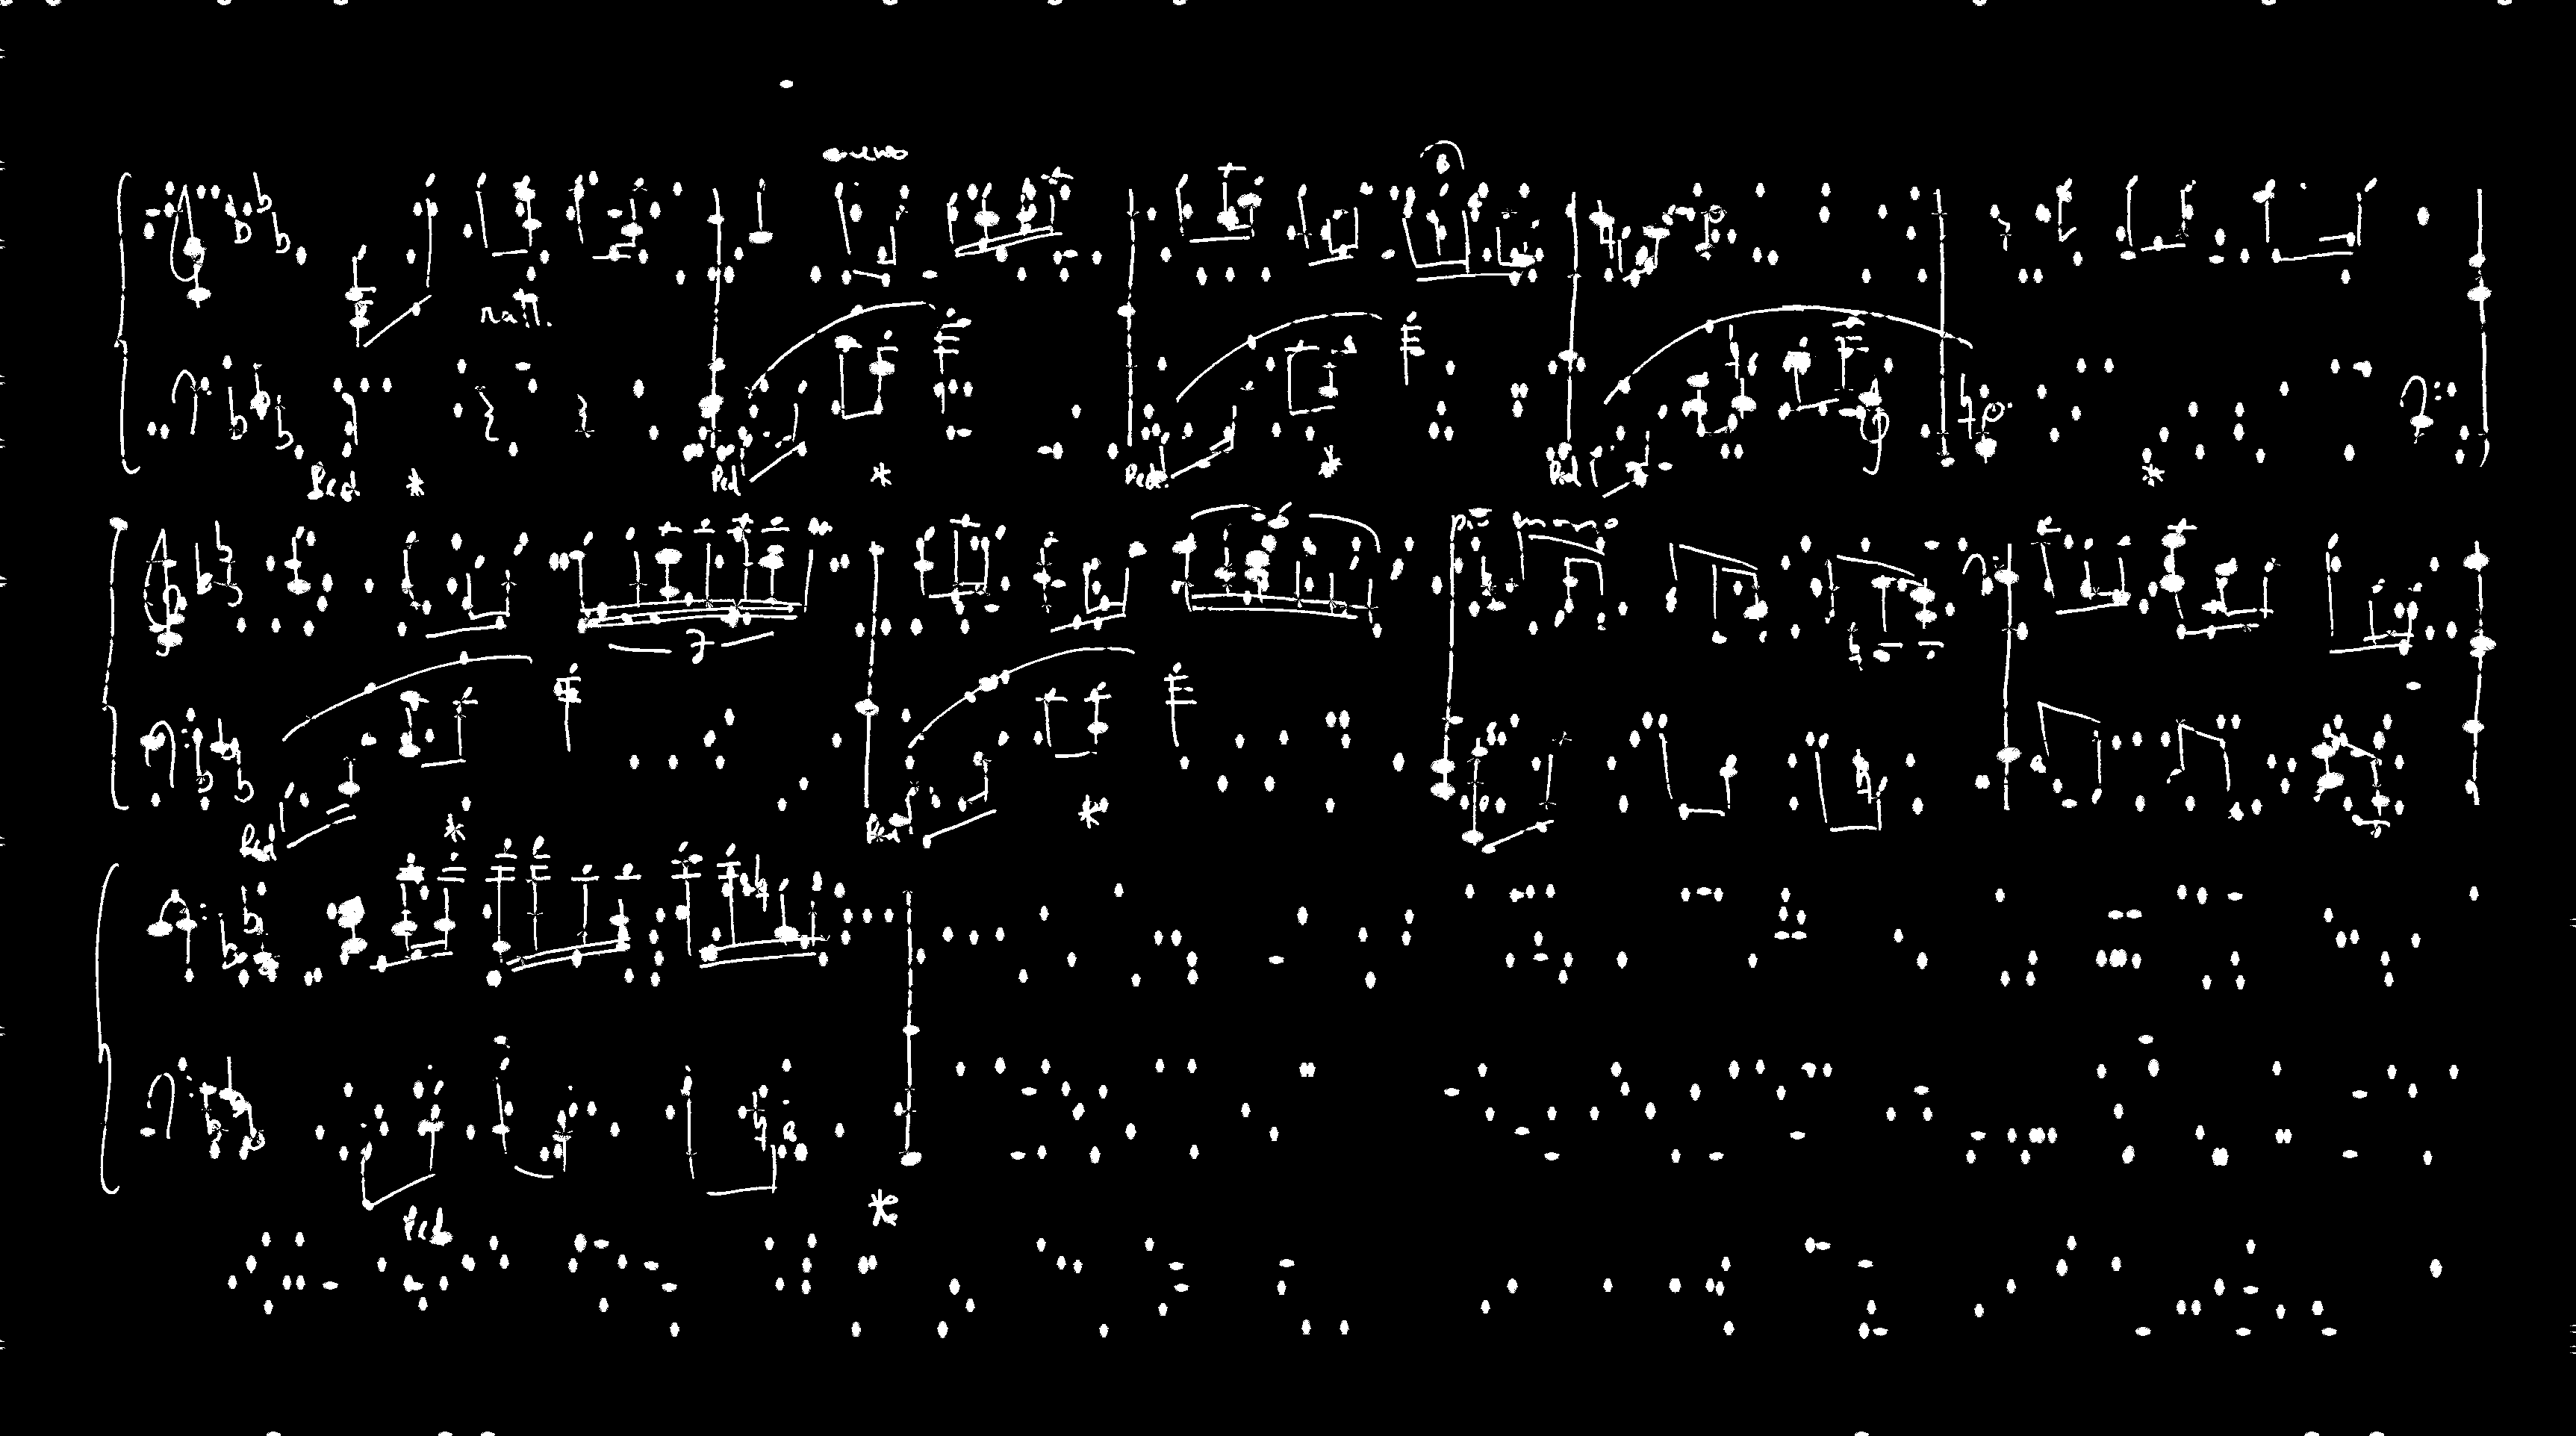 rall.
Ped * Ped * Ped. * Ped *
7
più mosso
Ped * Ped *
Ped *